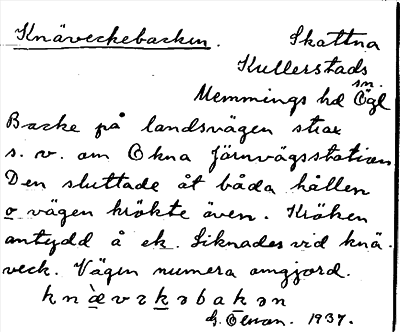 Knäveckebacken. Skattna
Kullerstads
sn.
Memmings hd Ögl
Backe på landsvägen strax
s. v. om Okna Järnvägsstation.
Den sluttade åt båda hållen
o vägen krökte även. Kröken
antydd å ek. Liknades vid knä-
veck. Vägen numera omgjord.
knæ̀vəkəbakən
G. Ö 1937.